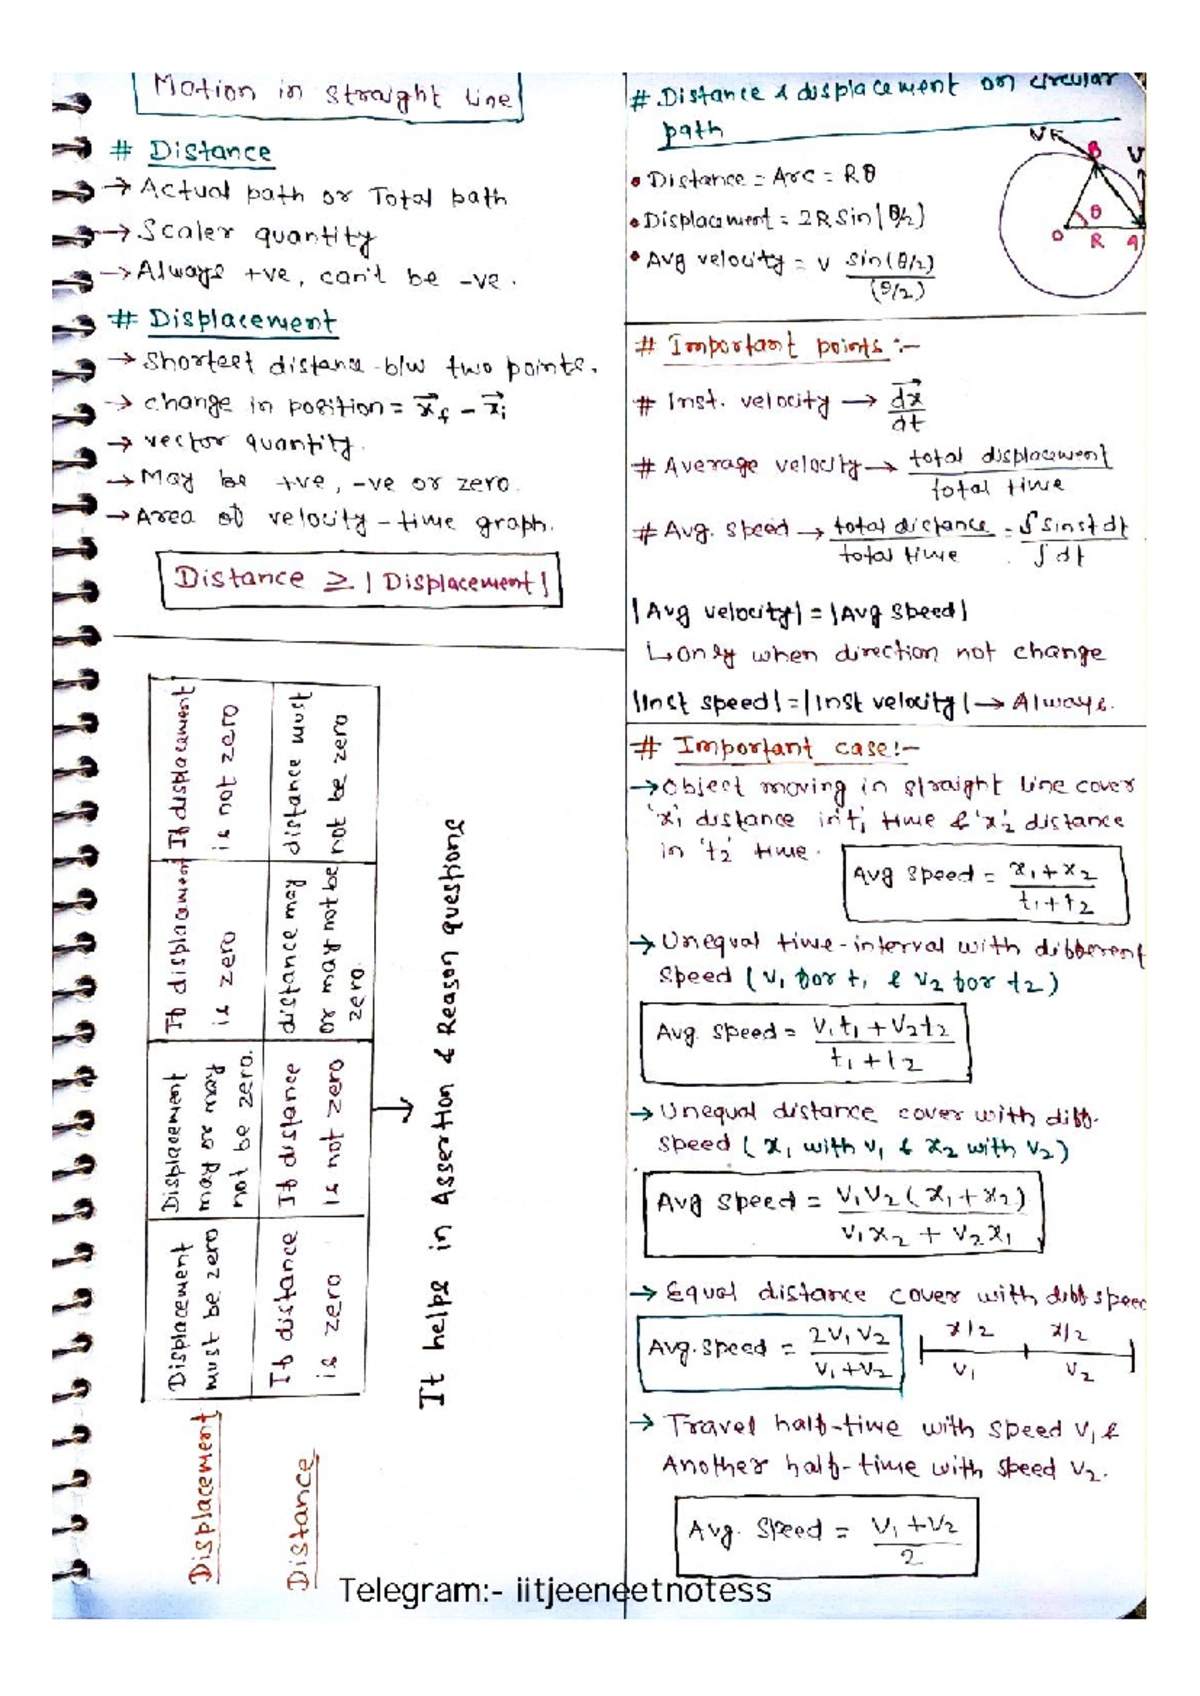 Motion in straight line
# Distance
→ Actual path or Total path
→ Scaler quantity
→ Always +ve, can't be -ve.
# Displacement
→ shortest distance b/w two points.
→ change in position = x⃗f - x⃗i
→ vector quantity.
→ May be +ve, -ve or zero.
→ Area of velocity-time graph.
Distance ≥ |Displacement|
Displacement
Displacement must be zero
Displacement may or may not be zero.
If displacement is zero
If displacement is not zero
Distance
If distance is zero
If distance is not zero
distance may or may not be zero.
distance must not be zero
It helps in Assertion & Reason questions
# Distance & displacement on circular
path
• Distance = Arc = Rθ
• Displacement = 2R sin(θ/2)
• Avg velocity = v sin(θ/2)
(θ/2)
B
θ
O R A
# Important points :-
# Inst. velocity → dx⃗
dt
# Average velocity → total displacement
total time
# Avg. speed → total distance = ∫ sinst dt
total time ∫ dt
|Avg velocity| = |Avg speed|
↳ only when direction not change
|Inst speed| = |Inst velocity| → Always.
# Important case:-
→ Object moving in straight line cover
'x₁' distance in 't₁' time & 'x₂' distance
in 't₂' time.
Avg speed = x₁+x₂
t₁+t₂
→ Unequal time-interval with different
speed (v₁ for t₁ & v₂ for t₂)
Avg. speed = v₁t₁ + v₂t₂
t₁ + t₂
→ Unequal distance cover with diff.
speed (x₁ with v₁ & x₂ with v₂)
Avg speed = v₁v₂(x₁+x₂)
v₁x₂ + v₂x₁
→ Equal distance cover with diff speed
Avg. speed = 2v₁v₂
v₁+v₂
x/2 x/2
v₁ v₂
→ Travel half-time with speed v₁ &
Another half-time with speed v₂.
Avg. speed = v₁+v₂
2
Telegram:- iitjeeneetnotess